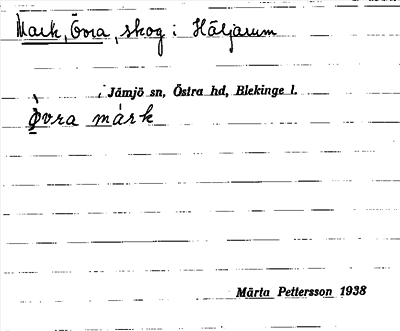 Mark, Övra, skog i Häljarum
i Jämjö sn, Östra hd, Blekinge l.
övra màrk
Märta Pettersson 1938